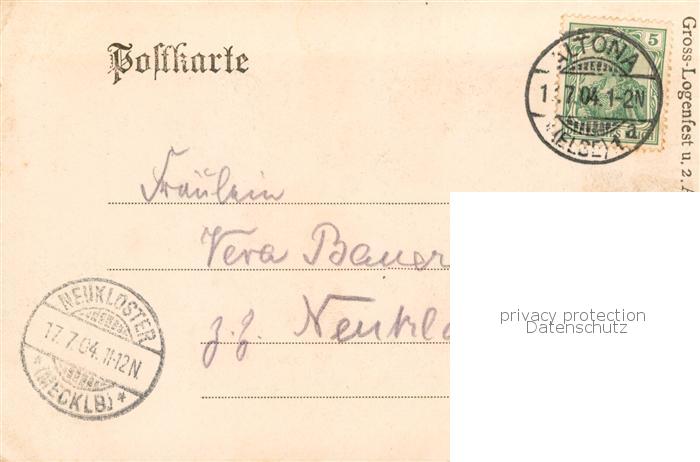 Postkarte
5
ALTONA
7.04. 1-2N
a.
(ELBE) 1.
Gross-Logenfest u. 2.
Fräulein
Vera Bauer
z. Z. Neukl
NEUKLOSTER
17.7.04. 11-12N.
* (MECKLB) *
privacy protection
Datenschutz